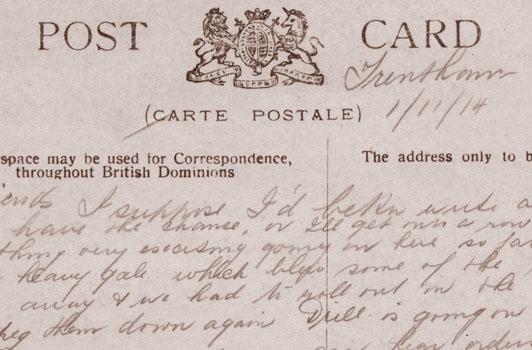 POST CARD
Trentham
1/11/14
(CARTE POSTALE)
space may be used for Correspondence,
throughout British Dominions
The address only to b
I suppose I'd better write a
have the chance, or I'll get into a row
thing very exciting going on here so far
heavy gale which blew some of the
away & we had to roll out in the
peg them down again Drill is going on
orders